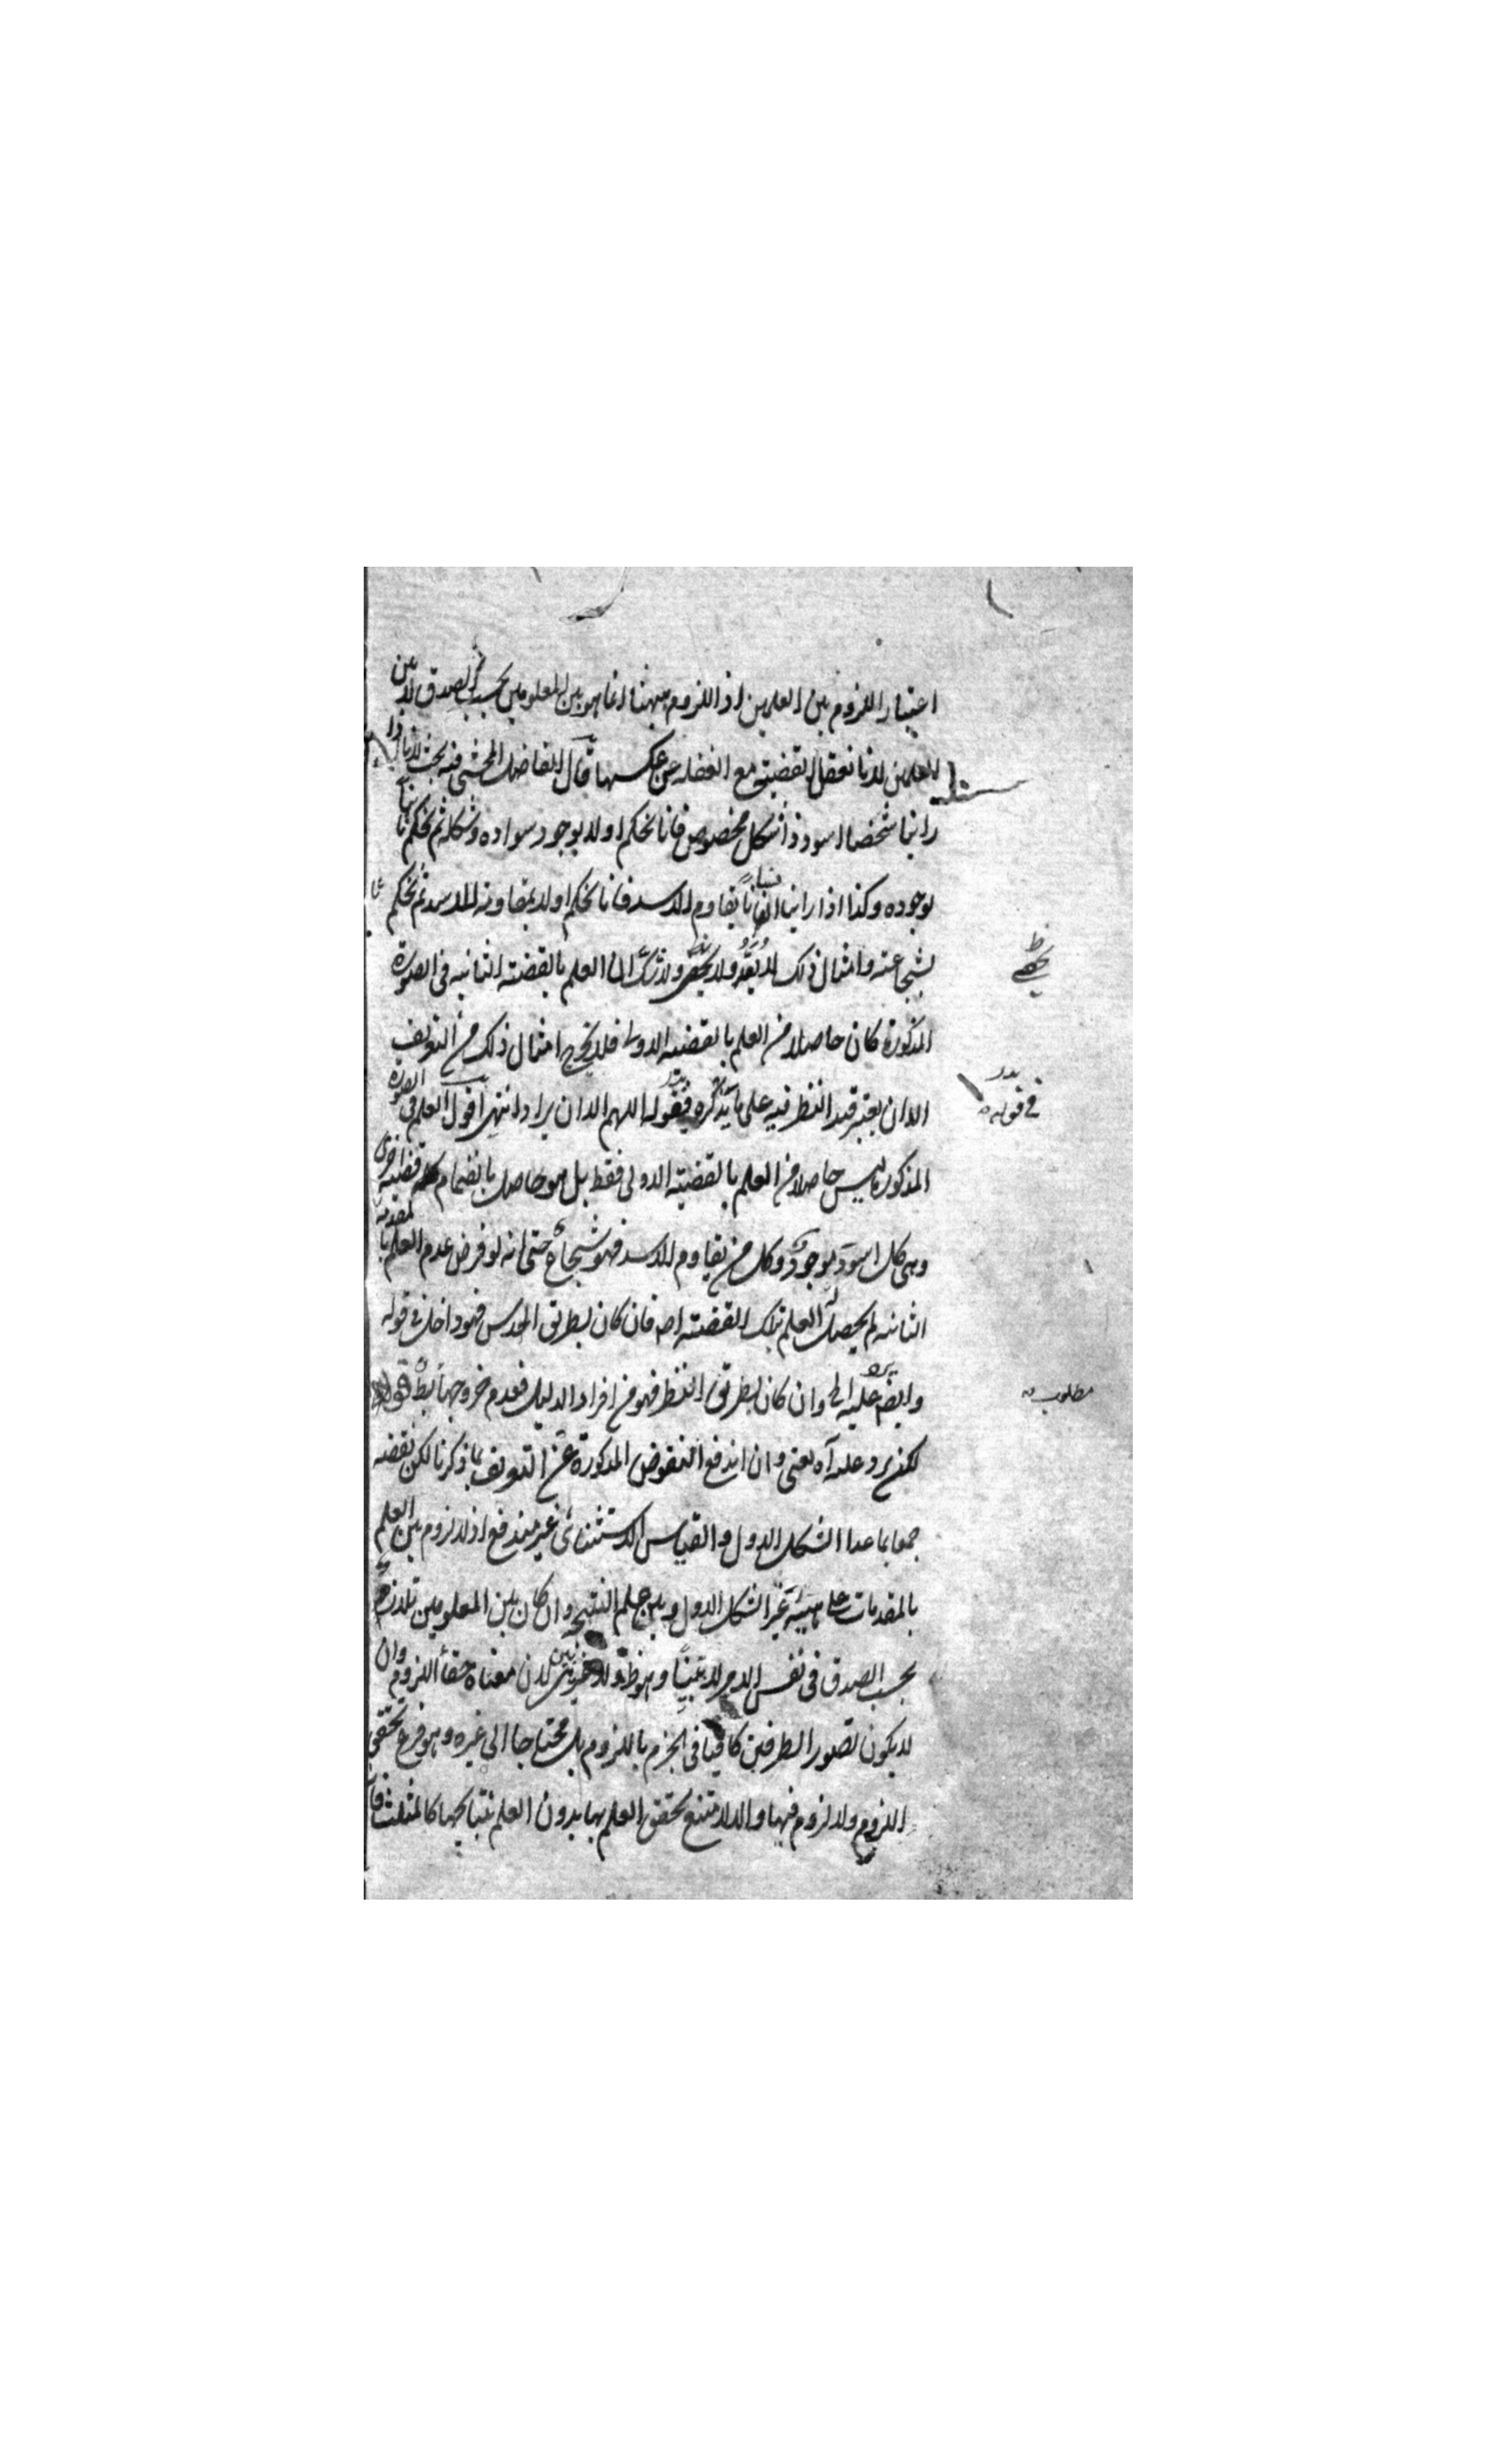 اعتبار اللزوم بين العلمين اذ اللزوم ههنا انما هو بين المعلومين بحسب الصدق لا بين
العلمين لانا نعقل القضية مع الغفلة عن عكسها قال الفاضل المحشي فيه بحث لانا اذا
راينا شخصا اسود ذا شكل مخصوص فانا نحكم اولا بوجود سواده وشكله ثم نحكم ثانيا
بوجوده وكذا اذا راينا انسانا يقاوم الاسد فانا نحكم اولا بمقاومته للاسد ثم نحكم
بشجاعته وامثال ذلك لا يعد ولا يحصى ولا شك ان العلم بالقضية الثانية في الصورة
المذكورة كان حاصلا من العلم بالقضية الاولى فلا يخرج امثال ذلك من التعريف
الا ان يعتبر قيد النظر فيه على ما يذكره بقوله اللهم الا ان يراد انتهى اقول العلم في الصورة
المذكورة ليس حاصلا من العلم بالقضية الاولى فقط بل هو حاصل بانضمام قضية اخرى
وهي كل اسود موجود وكل من يقاوم الاسد فهو شجاع حتى انه لو فرض عدم العلم بالمقدمة
الثانية لم يحصل له العلم بتلك القضية اصلا فان كان بطريق الحدس فهو داخل في قوله
وايضا يرد عليه الخ وان كان بطريق النظر فهو من افراد الدليل فعدم خروجها
لكن يرد عليه آه يعني وان اندفع النقوض المذكورة عن التعريف بما ذكرنا لكن نقضه
جمعا بما عدا الشكل الاول والقياس الاستثنائي غير مندفع اذ لا لزوم بين العلم
بالمقدمات على هيئة غير الشكل الاول وبين علم النتيجة وان كان بين المعلومين تلازم
بحسب الصدق في نفس الامر لا بينا وهو ظ ولا غير بين لان معناه خفأ اللزوم وان
لا يكون تصور الطرفين كافيا في الجزم باللزوم بل محتاجا الى غيره وهو فرع تحقق
اللزوم ولا لزوم فيها والا لامتنع تحقق العلم بها بدون العلم بنتائجها كالمثلث فانه
في قوله
مطلوب